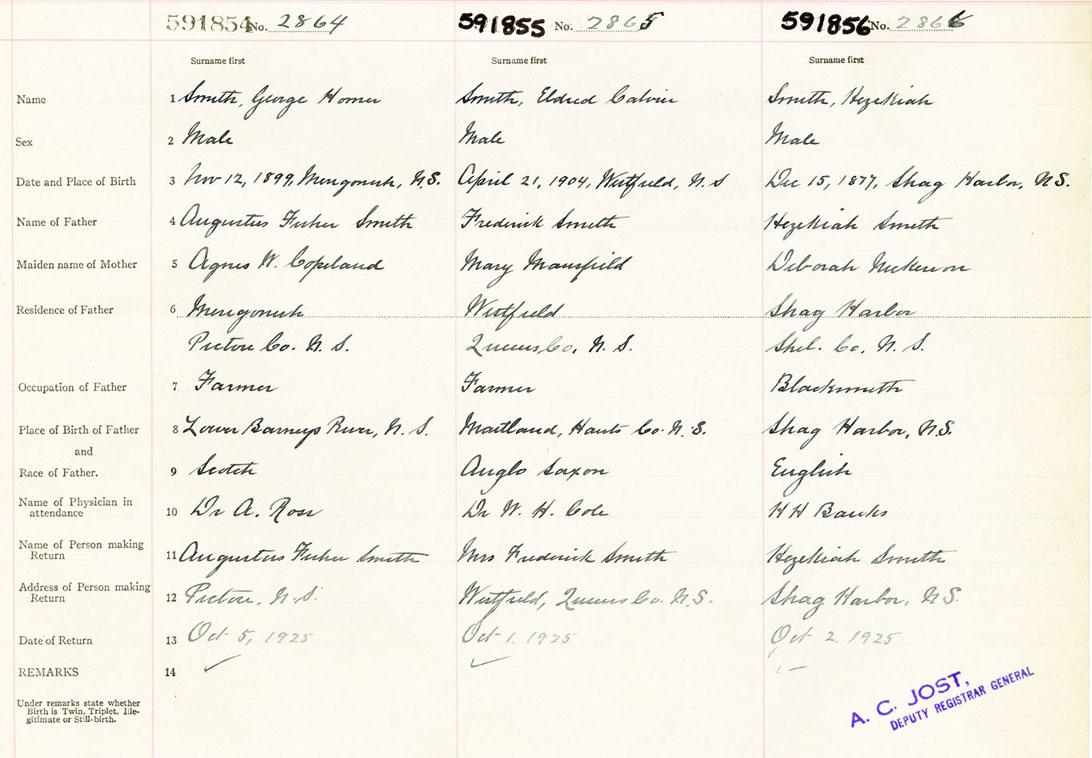 591854 No. 2864 591855 No. 2865 591856 No. 2866
Surname first Surname first Surname first
Name 1 Smith, George Homer Smith, Eldred Calvin Smith, Hezekiah
Sex 2 Male Male Male
Date and Place of Birth 3 Nov 12, 1899, N.S. April 21, 1904, Westfield, N. S Dec 15, 1877, Shag Harbor, N.S.
Name of Father 4 Augustus Fisher Smith Frederick Smith Hezekiah Smith
Maiden name of Mother 5 Agnes W. Copeland Mary Mansfield Deborah Nickerson
Residence of Father 6 Westfield Shag Harbor
Pictou Co. N. S. Queens Co, N. S. Shel. Co, N. S.
Occupation of Father 7 Farmer Farmer Blacksmith
Place of Birth of Father 8 Lower Barneys River, N. S. Maitland, Hants Co. N. S. Shag Harbor, N.S.
and
Race of Father. 9 Scotch Anglo Saxon English
Name of Physician in
attendance 10 Dr A. Ross Dr W. H. Cole H H Banks
Name of Person making
Return 11 Augustus Fisher Smith Mrs Frederick Smith Hezekiah Smith
Address of Person making
Return 12 Pictou, N.S. Westfield, Queens Co. N.S. Shag Harbor, N.S.
Date of Return 13 Oct 5, 1925 Oct 1. 1925 Oct 2. 1925
REMARKS 14
Under remarks state whether
Birth is Twin, Triplet, Ille-
gitimate or Still-birth.
A. C. JOST,
DEPUTY REGISTRAR GENERAL